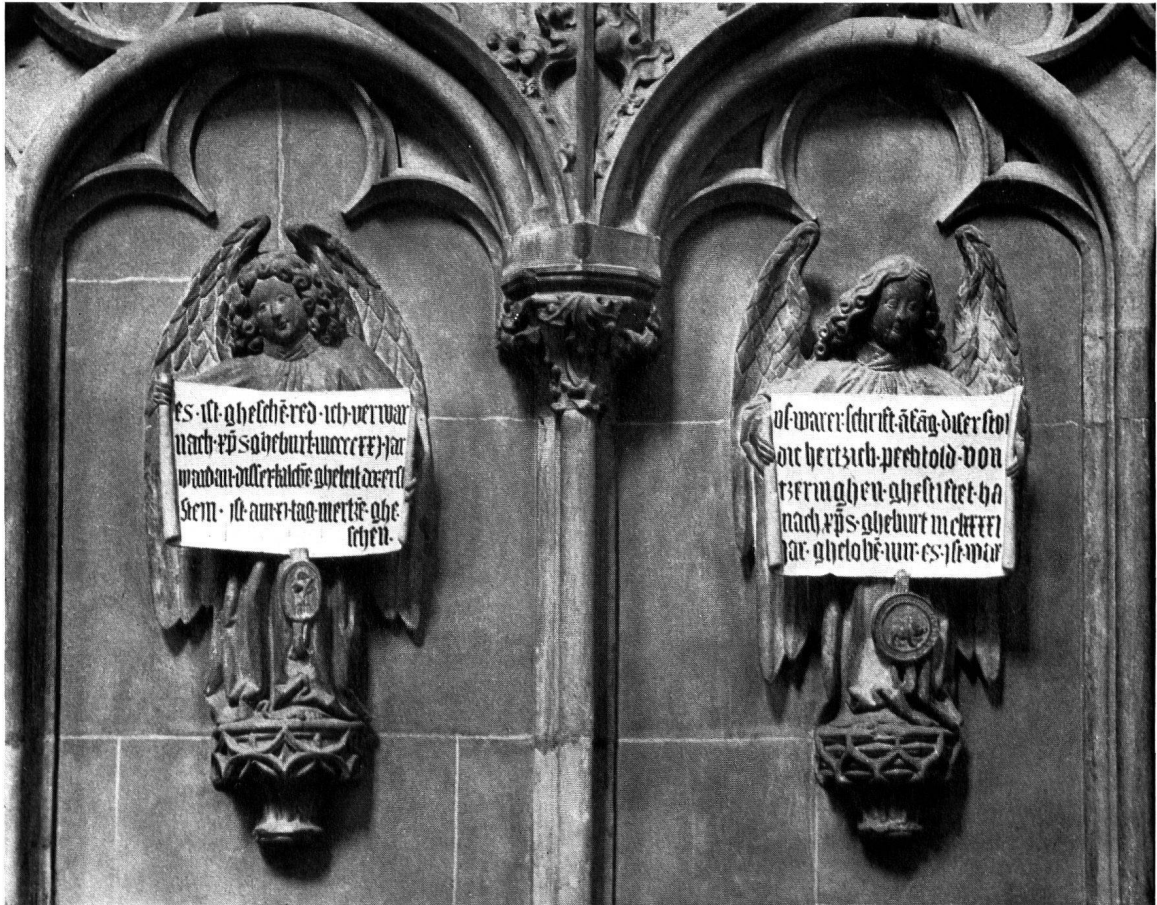 es · ist · gheschē · red · ich · verwar
nach · xp̄s · gheburt · mccccxxj · jar
ward · an · disser · kilchē · gheleit · der · erst
stein · ist · am · xj · tag · mertzē · ghe
schen ·
vs · warer · schrift · āfāg · diser stat
die hertzich · perhtold · von
tzeringhen · ghestiftet · ha
nach xp̄s · gheburt mclxxxxi
jar · ghelobē · mir · es · ist · war